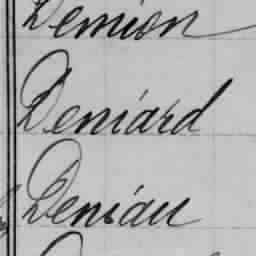 Demion
Deniard
Deniau